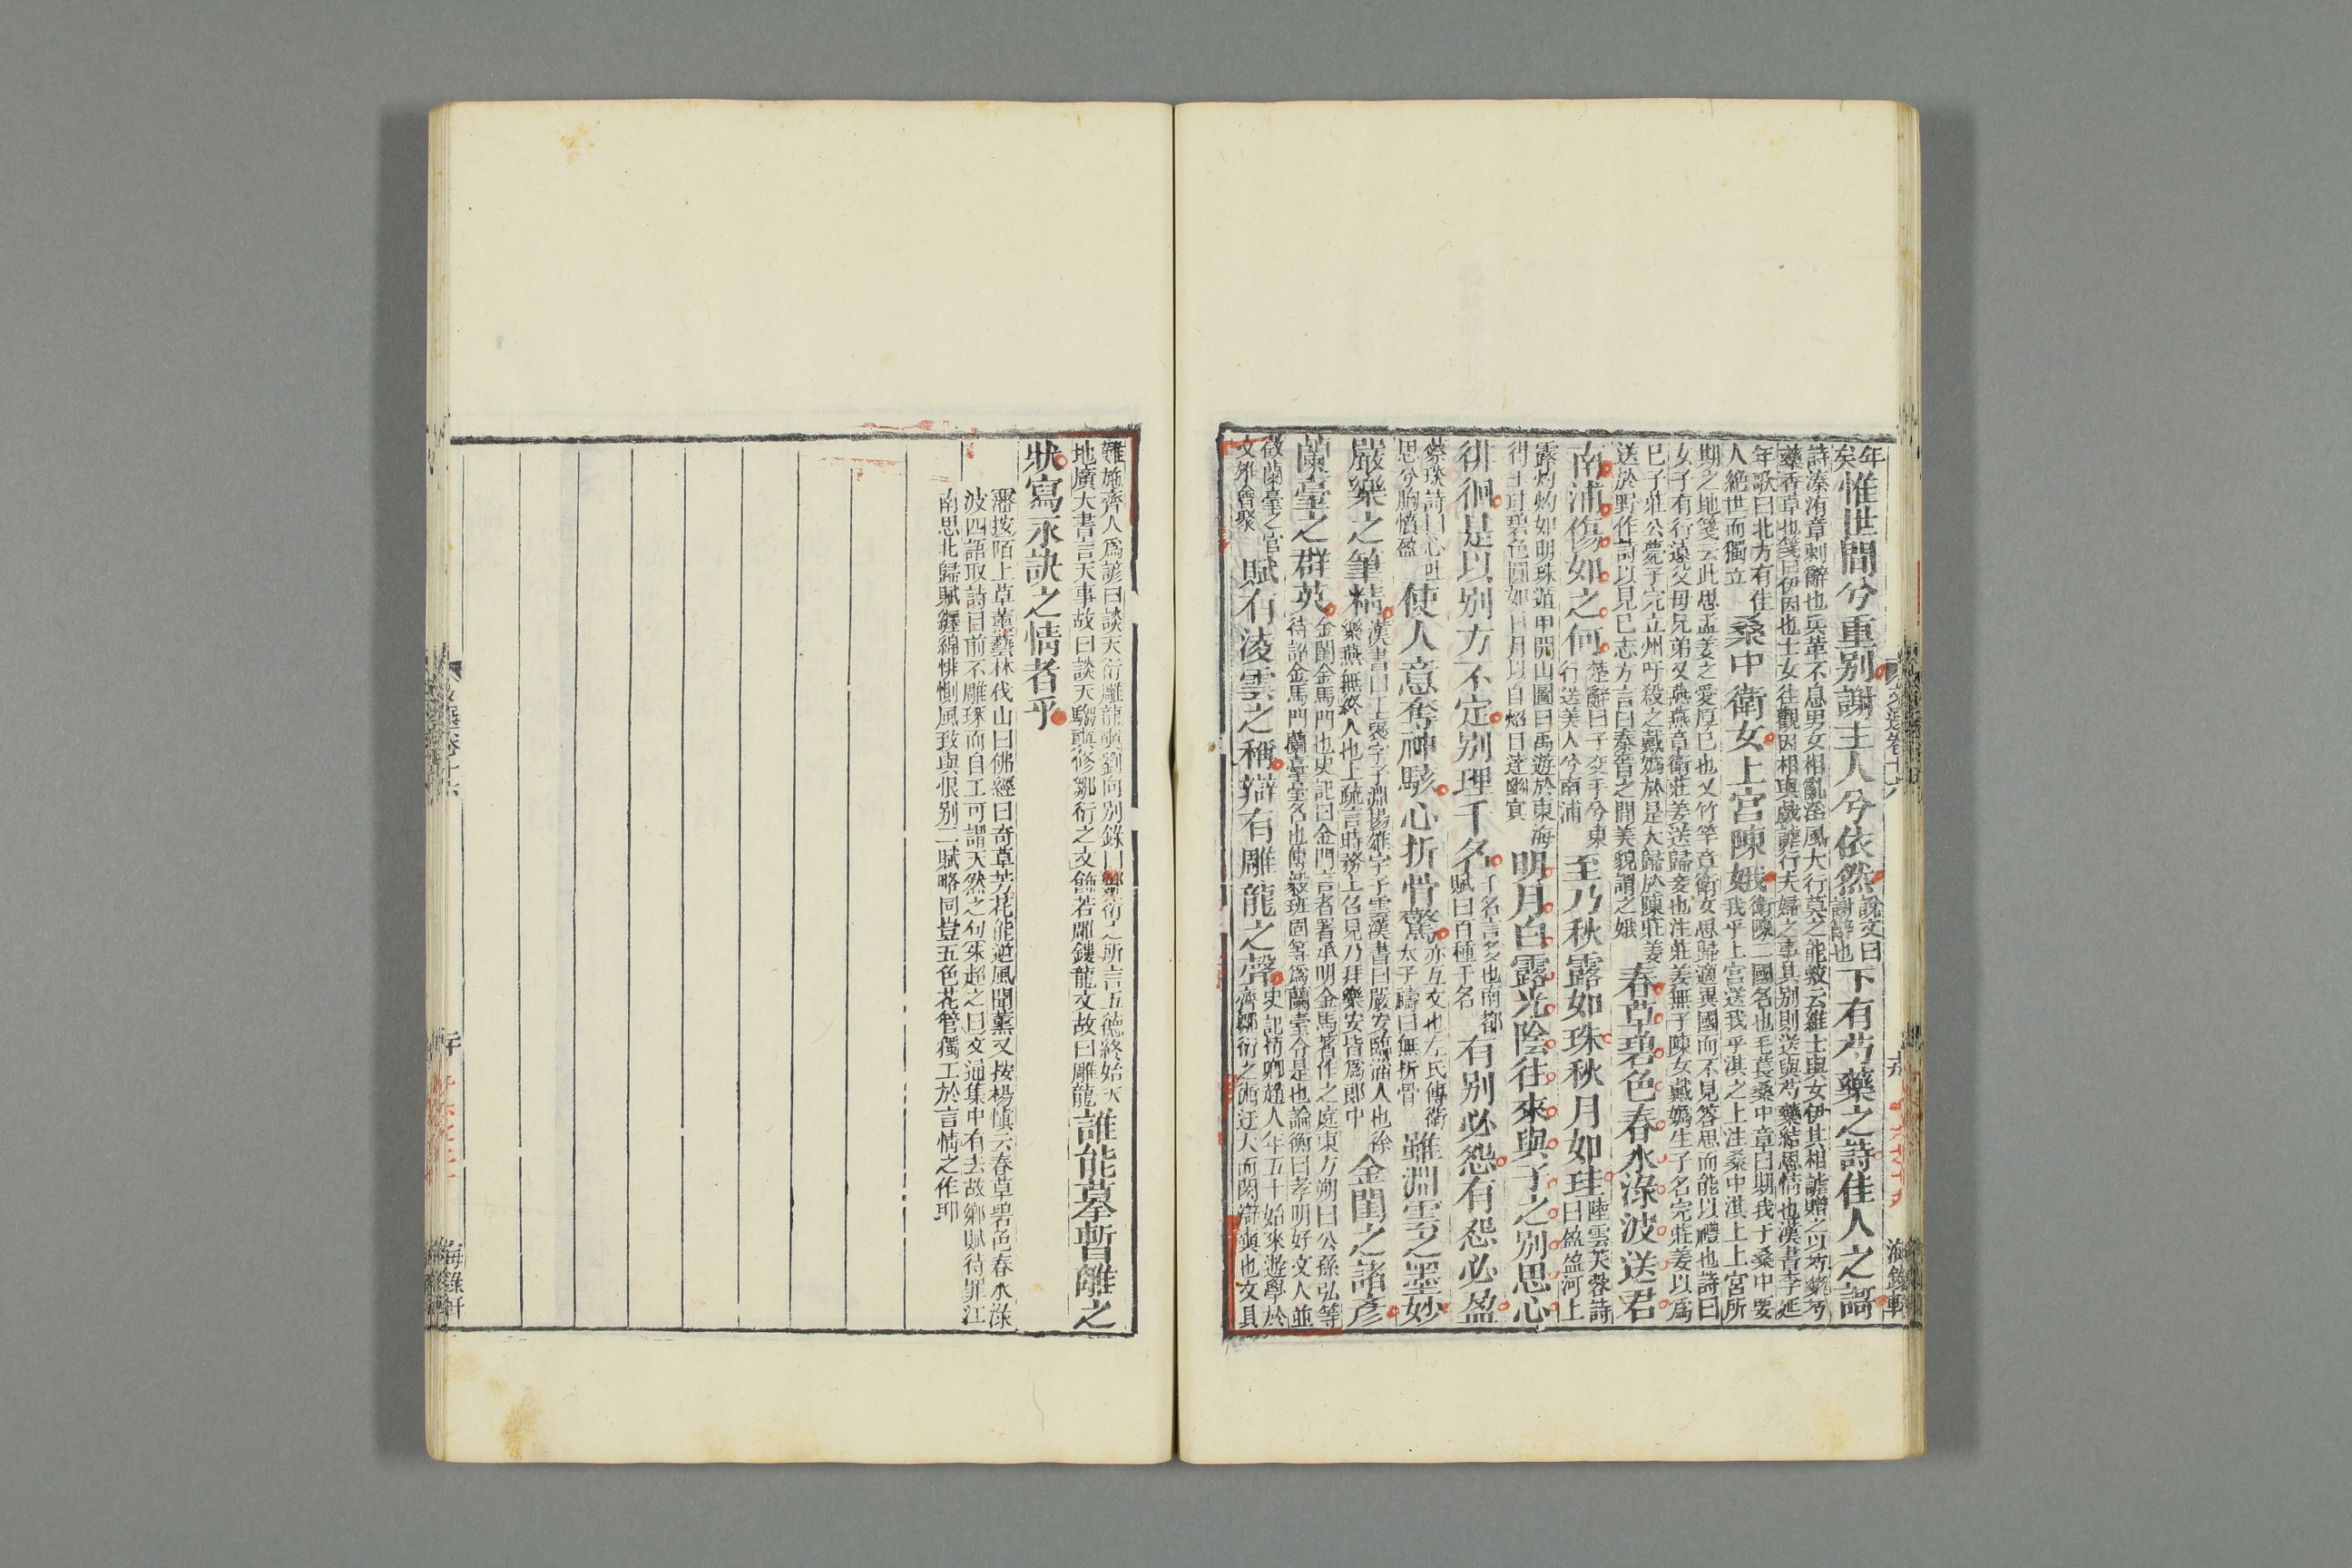 年矣惟世間兮重别謝主人兮依然說文曰謝辭也下有芍藥之詩佳人之謌
詩溱洧章刺亂也兵革不息男女相亂淫風大行莫之能救云維士與女伊其相謔贈之以芍藥芍
藥香草也箋曰伊因也士女往觀因相與戲謔行夫婦之事其別則送與芍藥結恩情也漢書李延
年歌曰北方有佳人絶世而獨立桑中衛女上宮陳娥衛陳二國名也毛萇桑中章曰期我于桑中要我乎上宮送我乎淇之上注桑中淇上上宮所
期之地箋云此思孟姜之愛厚已也又竹竿章衛女思歸適異國而不見答思而能以禮也詩曰
女子有行遠父母兄弟又燕燕章衛莊姜送歸妾也注莊姜無子陳女戴嬀生子名完莊姜以爲
已子莊公薨子完立州吁殺之戴嬀於是大歸於陳莊姜送於野作詩以見已志方言曰秦晉之間美貌謂之娥春草碧色春水淥波送君
南浦傷如之何楚辭曰子交手兮東行送美人兮南浦至乃秋露如珠秋月如珪陸雲芙蓉詩曰盈盈河上
露灼灼如明珠遁甲開山圖曰禹遊於東海得玉珪碧色圓如日月以自焰目達幽冥明月白露光陰往來與子之别思心
徘徊是以别方不定别理千名千名言多也南都賦曰百種千名有别必怨有怨必盈
蔡琰詩曰心吐思兮胸憤盈使人意奪神駭心折骨驚亦互文也左氏傳衛太子禱曰無折骨雖淵雲之墨妙
嚴樂之筆精漢書曰王襃字子淵揚雄字子雲漢書曰嚴安臨淄人也徐樂燕無終人也上疏言時務上召見乃拜樂安皆爲郎中金閨之諸彥
蘭臺之群英金閨金馬門也史記曰金門言者署承明金馬著作之庭東方朔曰公孫弘等待詔金馬門蘭臺臺名也傅毅班固等爲蘭臺令是也論衡曰孝明好文人並
徵蘭臺之官文雄會聚賦有凌雲之稱辯有雕龍之聲史記荀卿趙人年五十始來遊學於齊鄒衍之術迂大而閎辯奭也文具
難施齊人爲諺曰談天衍雕龍奭劉向别錄曰鄒衍之所言五德終始天地廣大書言天事故曰談天騶奭修鄒衍之文飾若雕鏤龍文故曰雕龍誰能摹暫離之
狀寫永訣之情者乎
潘按陌上草薰藝林伐山曰佛經曰奇草芳花能逆風聞薰又按楊愼云春草碧色春水淥
波四語取諸目前不雕琢而自工可謂天然之句朱超之曰文通集中有去故鄉賦待罪江
南思北歸賦纏綿悱惻風致與恨别二賦略同豈五色花管獨工於言情之作耶
文選卷十六
海錄軒